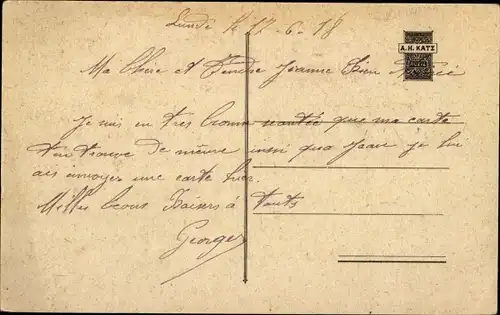 Lundi le 17-6-18
A.H. KATZ
Ma Chère et Tendre Jeanne Bien Aimée
Je suis en très bonne santée que ma carte
t'en trouve de même insi qua Jean je lui
ais envoyez une carte hier.
Milles Beaux Baisers à touts
Georges